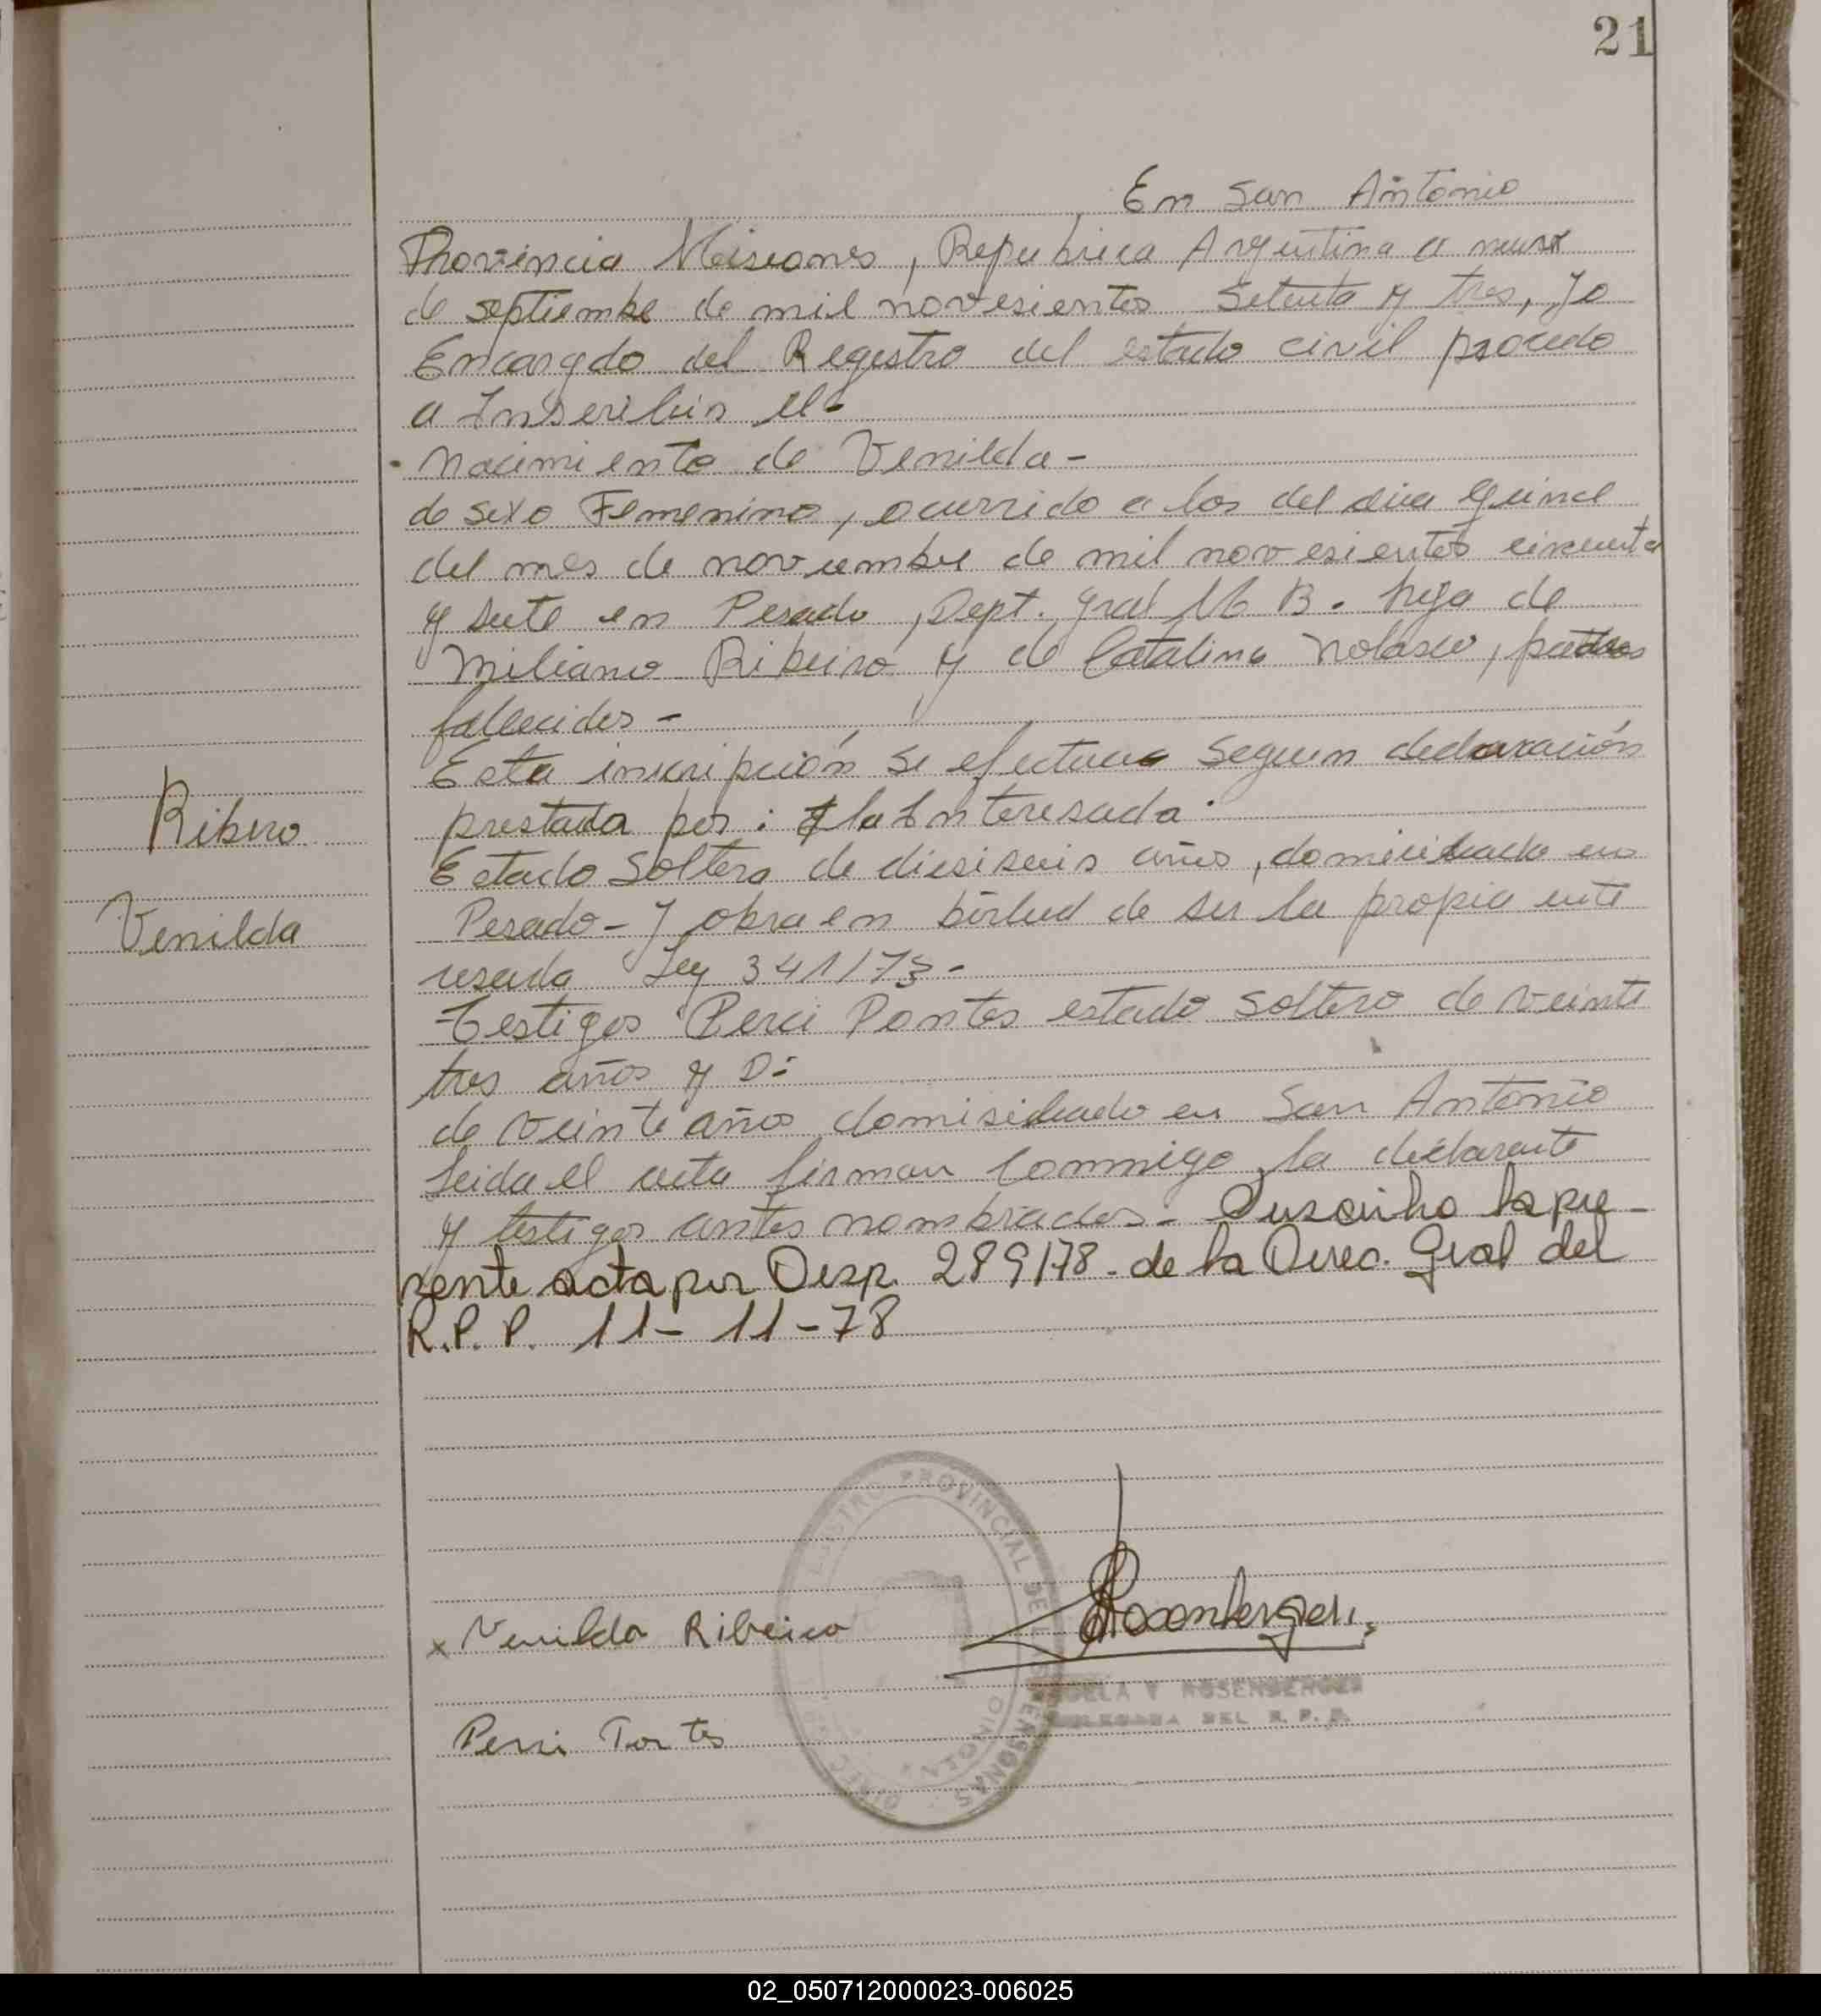 21
En San Antonio
Provincia Misiones, Republica Argentina a
de septiembe de mil novesientos Setenta y tres, Yo
Encargdo del Registro del estado civil procedo
a Inscribir el
nacimiento de Venilda -
de sexo Femenino, ocurrido a las del dia quince
del mes de noviembre de mil novesientos cincuenta
y siete en Pesado, Dept. Gral M B. hija de
miliano Ribeiro y de Catalina Nolasco, padres
fallecidos -
Esta inscripción se efectua seguin declaración
prestada por: la Interesada.
Estado Soltera de diesiseis años, domiciliada en
Pesado - Y obra en birtud de ser la propia inte
resada Ley 341/73 -
Testigos Perci Pontes estado soltero de veinte
tres años y D:
de veinte años domisiliado en San Antonio
Leida el acta firman conmigo la declarante
y testigos antes nombrados. - Suscribo la pre -
sente acta por Disp. 289178 - de la Direc. Gral del
R.P.P. 11 - 11 - 78
Ribero
Venilda
REGISTRO PROVINCIAL DE LAS PERSONAS
x Venilda Ribeiro
Rosenberger
V ROSENBERGER
DELEGADA DEL R. P. P.
02_050712000023-006025